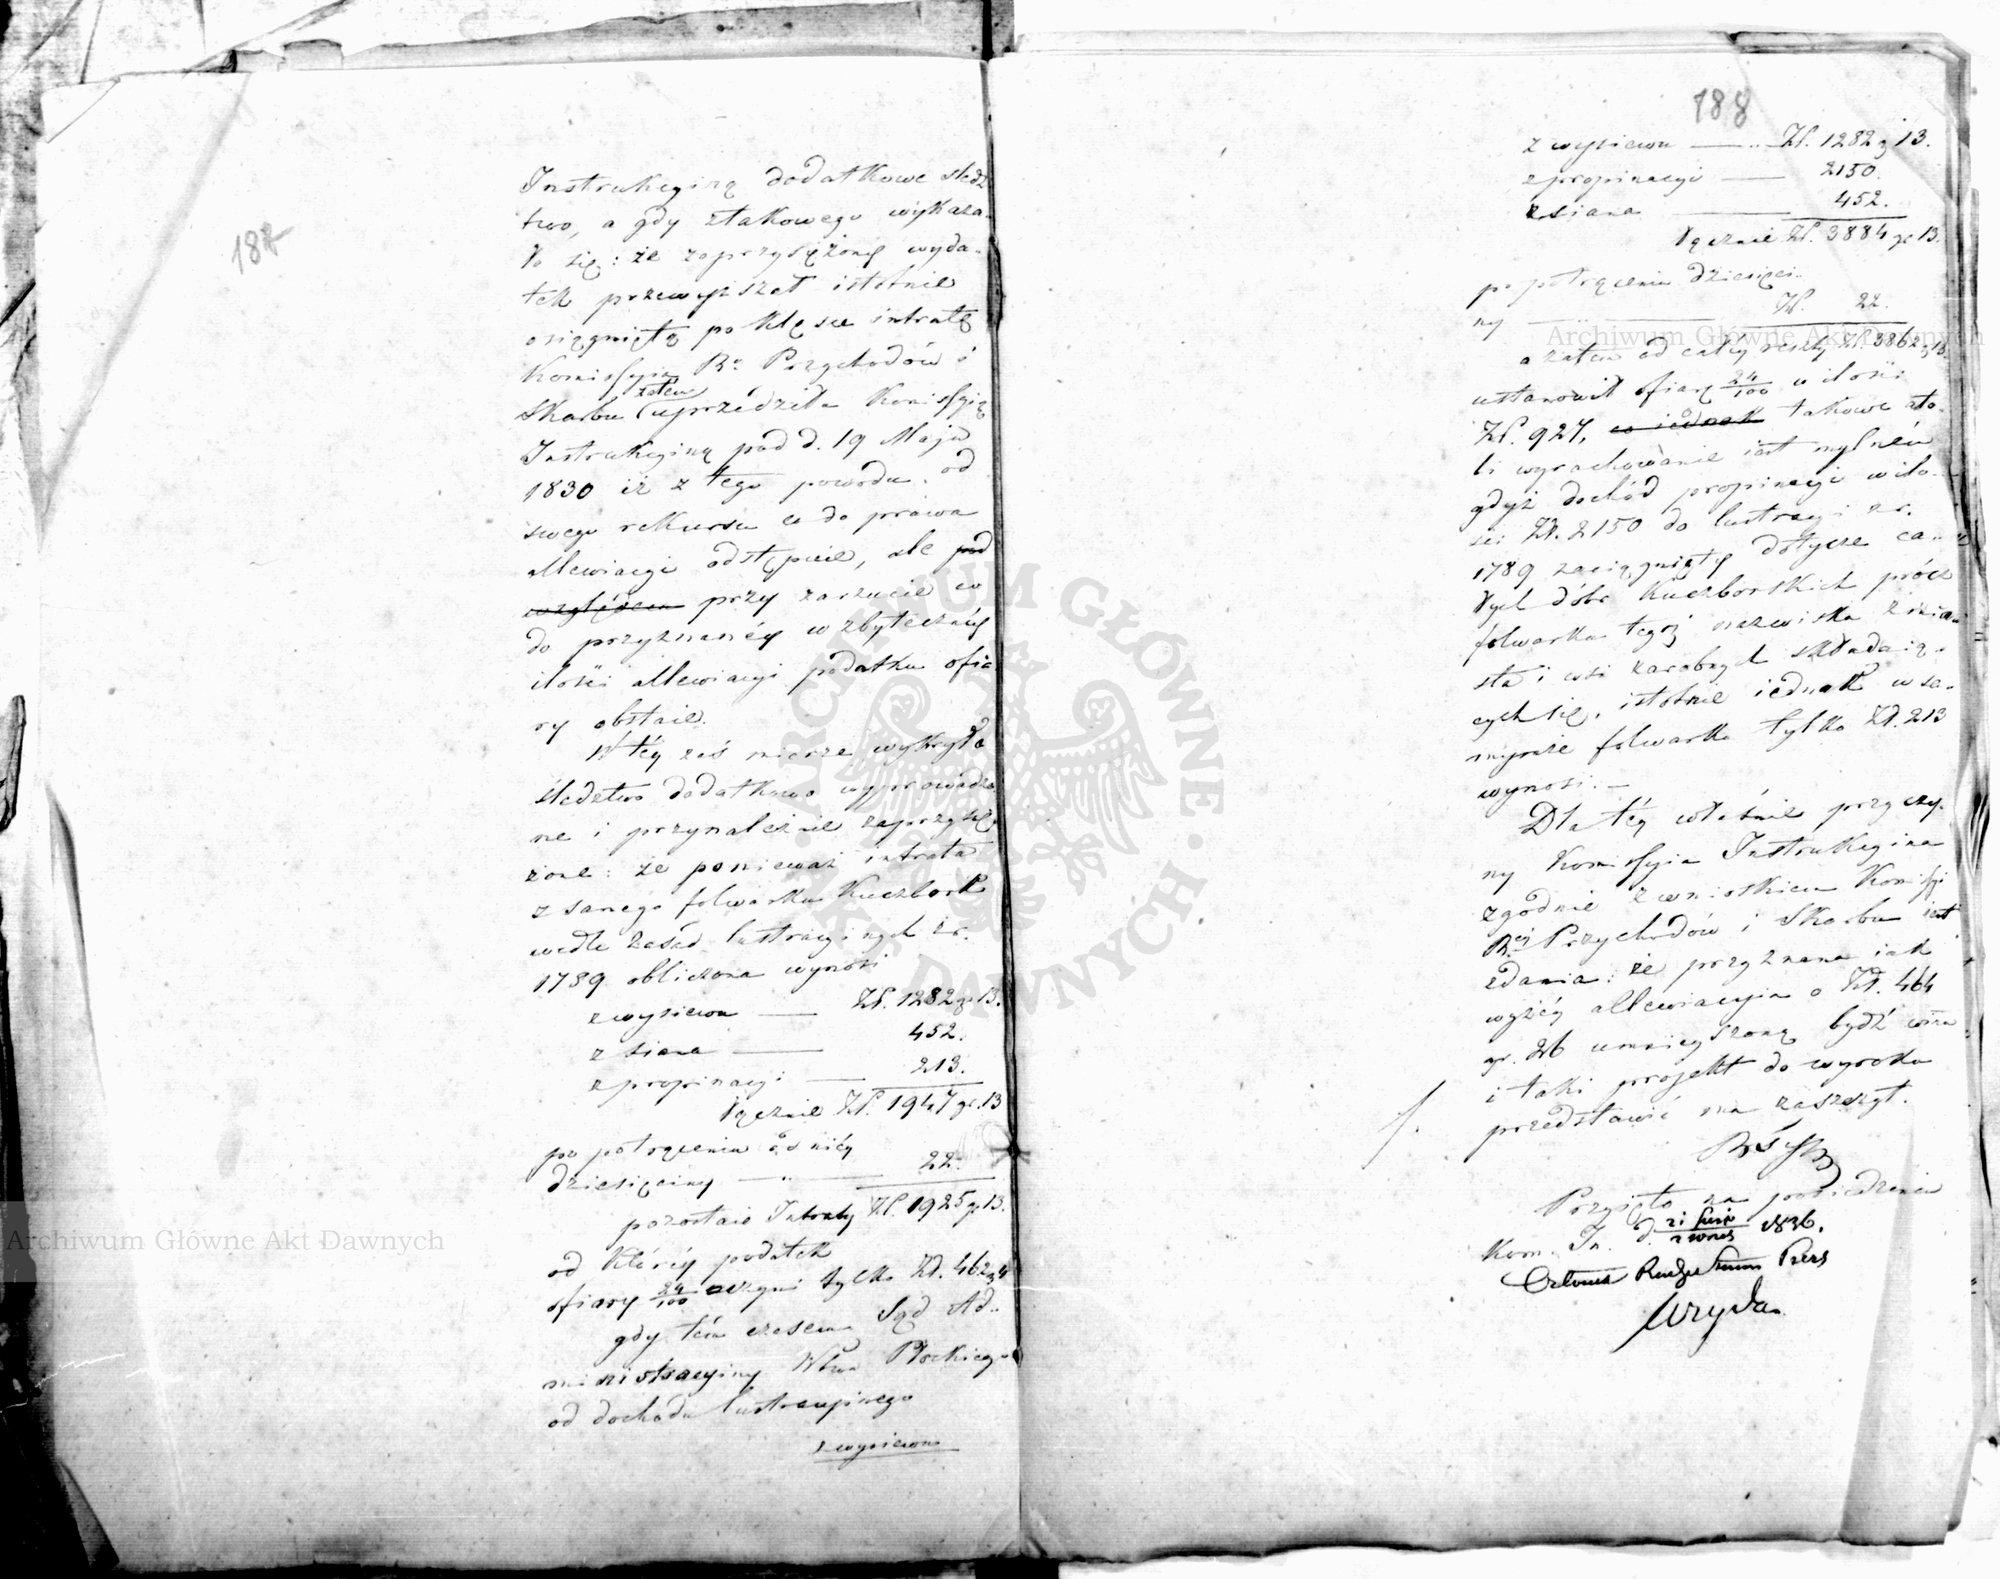 187
Instrukcyiną dodatkowe śledz
two, a gdy z takowego wykaza-
ło się: że zaprzysiężony wyda-
tek przewyższał istotnie
osiągniętą po klęsce intratę
Kommissyia R. Przychodów i
Skarbu zatem uprzedziła Kommissyią
Instrukcyiną pod d. 19 Maja
1830 iż z tego powodu od
swego rekursu co do prawa
allewiacyi odstępuie, ale pod
względem przy zarzucie co
do przyznanéy w zbyteczney
ilości allewiacyi podatku ofia
ry obstaie.
W téy zaś mierze wykryło
śledztwo dodatkowo wyprowadzo
ne i przynależnie zaprzysię
żone: że ponieważ intrata
z samego folwarku Kuczbork
wedle zasad lustracyinych z r.
1789 obliczona wynosi
z wysiewu — Zł. 1282 gr 13.
z siana — 452.
z propinacyi — 213.
łącznie Zł. 1947 gr. 13
po potrąceniu od niéy
dziesięciny — " — 22.
pozostaie Intraty Zł. 1925 gr 13.
od któréy podatek
ofiary 24/100 czyni tylko Zł. 462 g 4
gdy tém czasem Sąd Ad-
ministracyiny Wtwa Płockiego
od dochodu lustracyinego
z wysiewu
188
z wysiewu — " — Zł. 1282 g 13.
z propinacyi — 2150.
z siana — 452.
łącznie Zł. 3884 gr 13.
po potrąceniu dziesięci-
ny — Zł. 22.
a zatem od całéy reszty Zł. 3862 g 13
ustanowił ofiarę 24/100 w ilości
Zł. 927, co iednak takowe ato-
li wyrachowanie iest mylném
gdyż dochód propinacyi w ilo-
ści Zł. 2150 do lustracyi z r.
1789 zaciągnięty dotycze ca-
łych dóbr Kuczborskich prócz
folwarku tegoż nazwiska z mia-
sta i wsi zarobnych składaią-
cych się, istotnie iednak w sa-
mymże folwarku tylko Zł. 213
wynosi. —
Dla téy właśnie przyczy-
ny Kommissyia Instrukcyina
zgodnie z wnioskiem Kommissyi
R. Przychodów i Skarbu iest
zdania: że przyznana iak
wyżéy allewiacyia o Zł. 464
gr. 26 umnieyszoną bydź winna
i taki projekt do wyroku
przedstawić ma zaszczyt.
Przyięto na posiedzeniu
Kom. In. d. 1836.